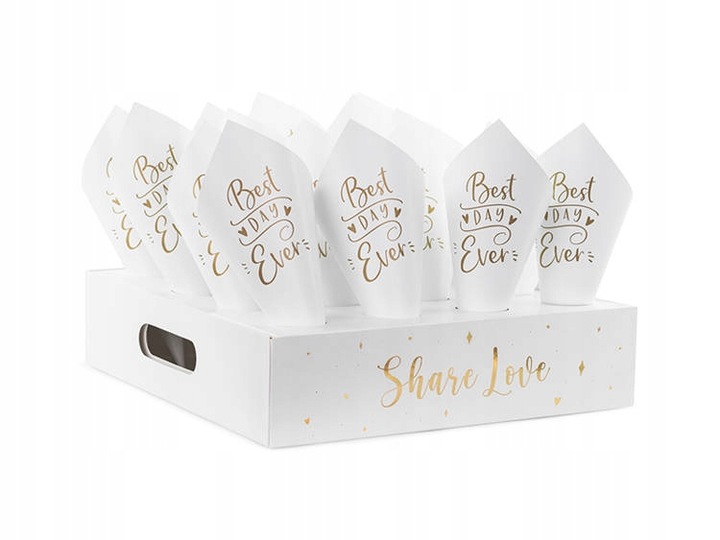 Best
DAY
Ever
Best
DAY
Ever
Best
DAY
Ever
Best
DAY
Ever
Best
DAY
Ever
Best
DAY
Ever
Share Love